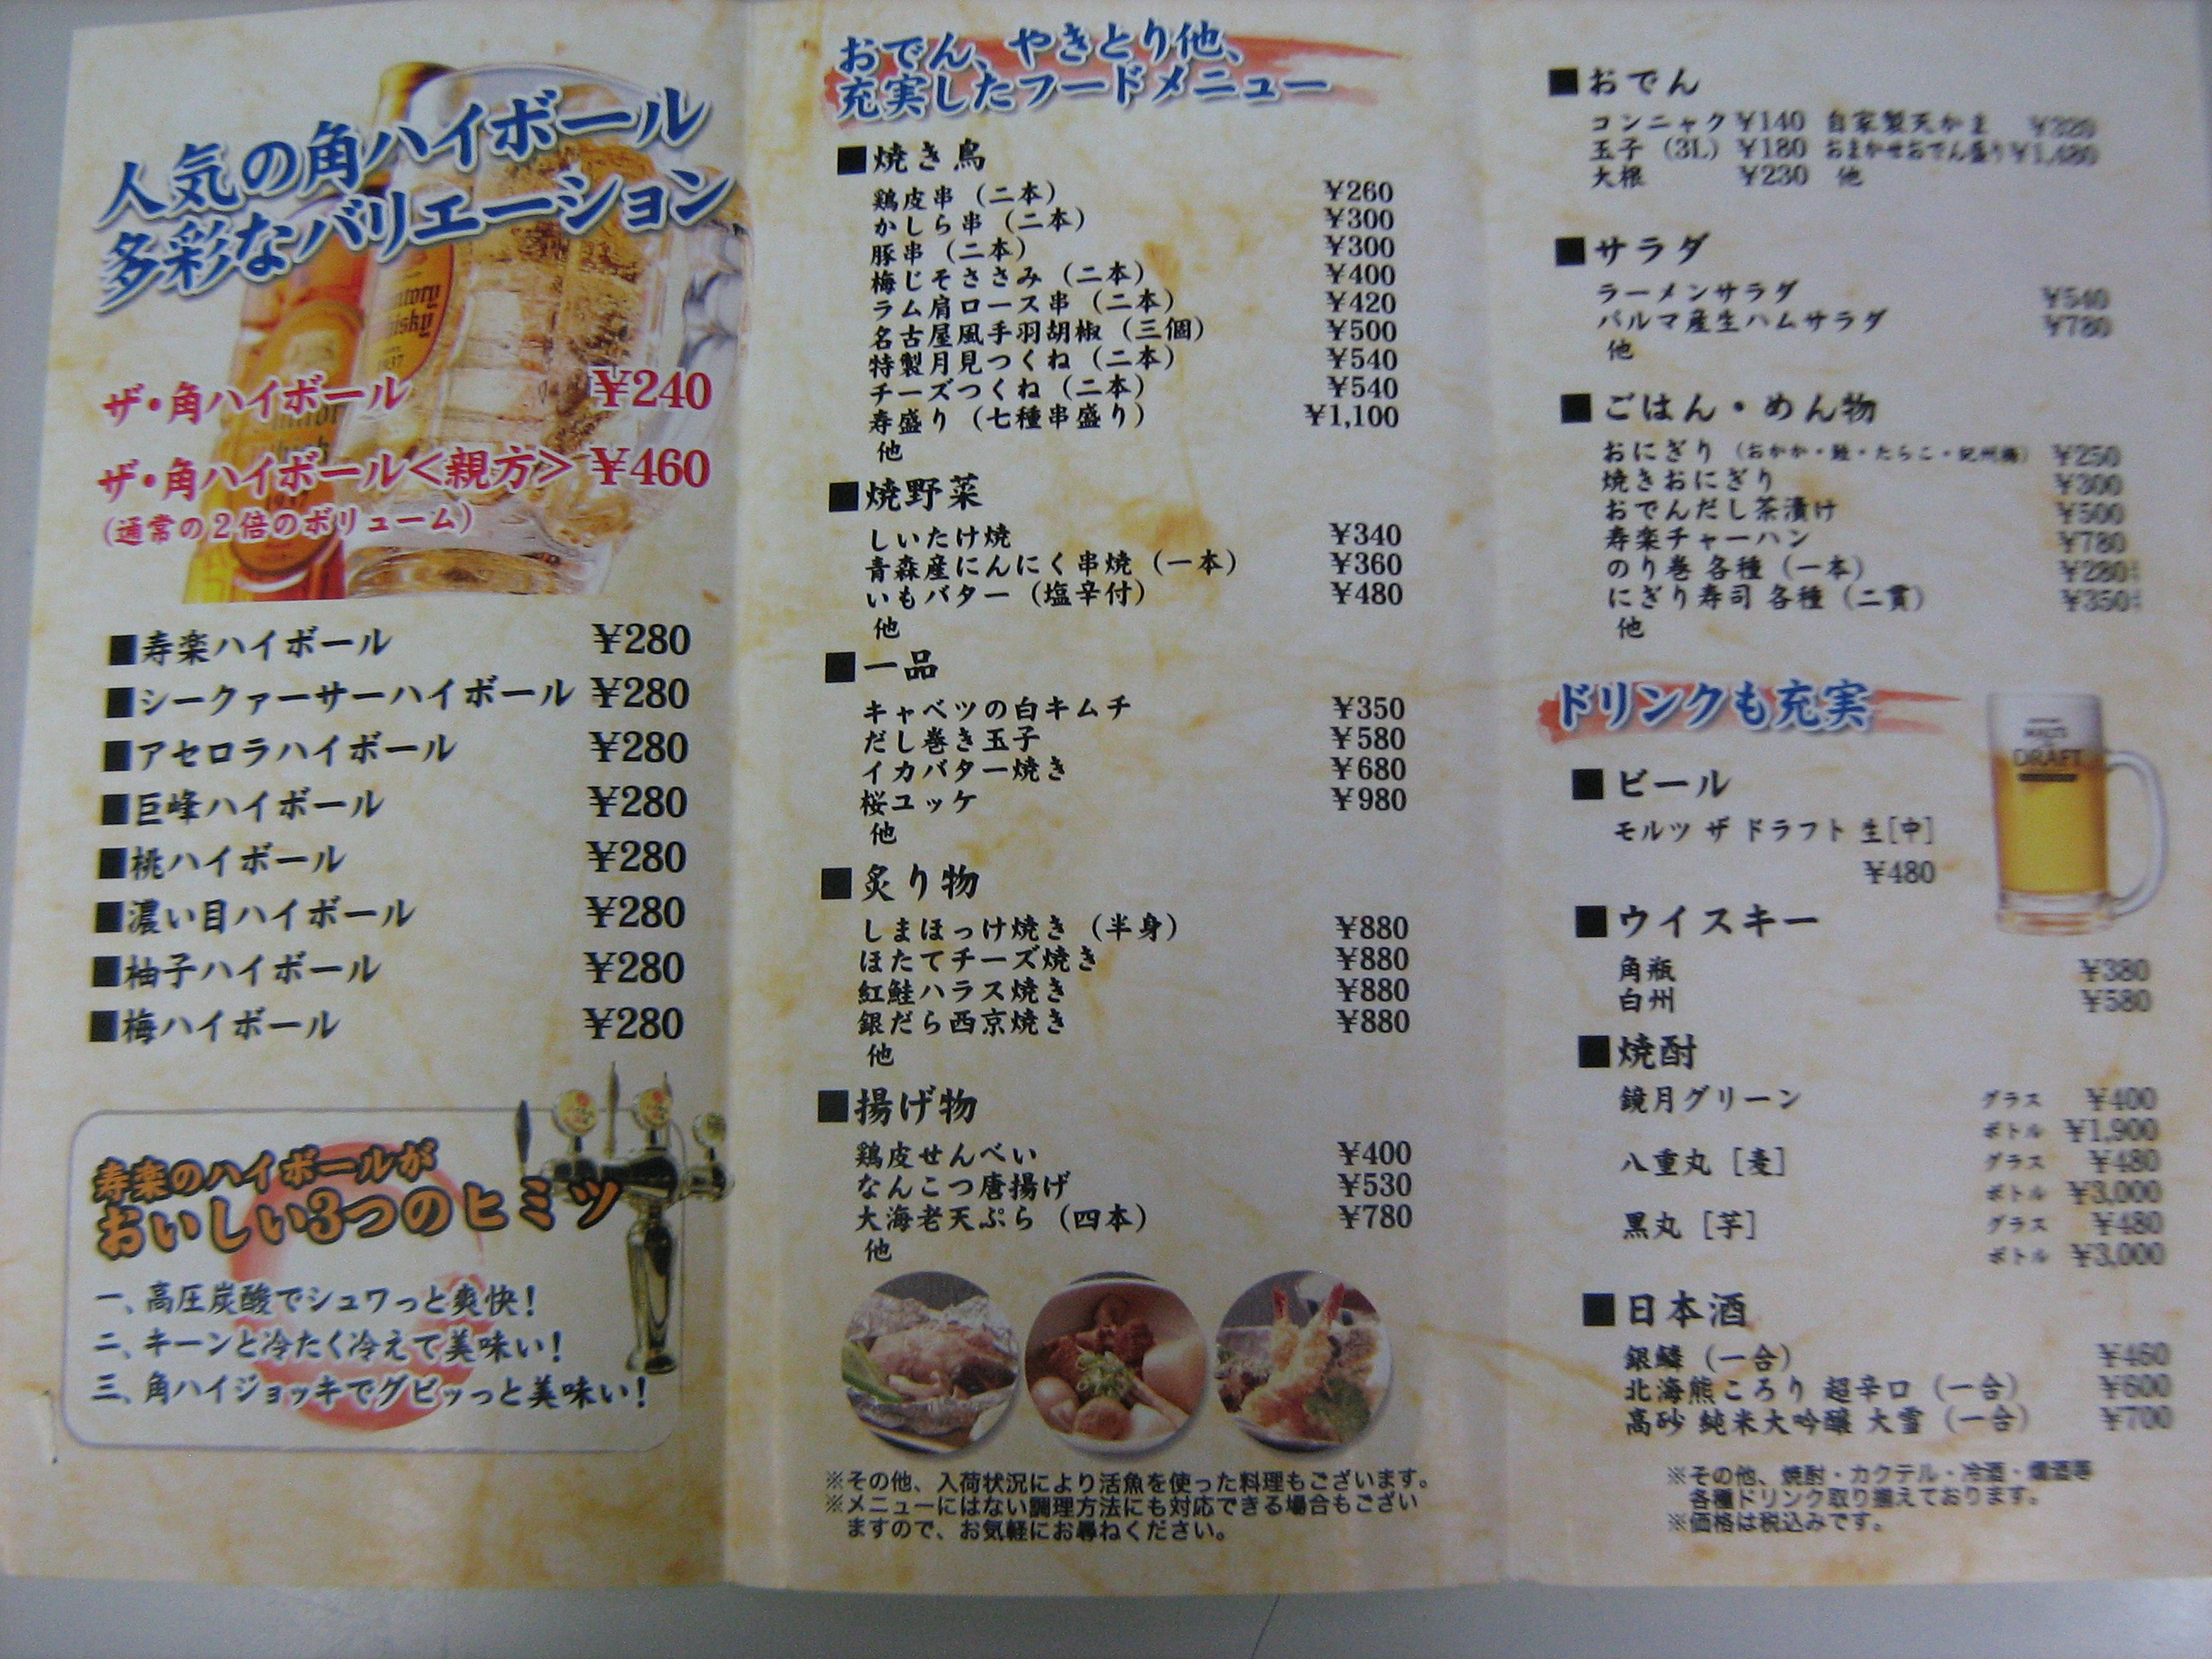 人気の角ハイボール
多彩なバリエーション
ザ・角ハイボール ¥240
ザ・角ハイボール<親方> ¥460
(通常の2倍のボリューム)
■寿楽ハイボール ¥280
■シークァーサーハイボール ¥280
■アセロラハイボール ¥280
■巨峰ハイボール ¥280
■桃ハイボール ¥280
■濃い目ハイボール ¥280
■柚子ハイボール ¥280
■梅ハイボール ¥280
寿楽のハイボールが
おいしい3つのヒミツ
一、高圧炭酸でシュワっと爽快!
二、キーンと冷たく冷えて美味い!
三、角ハイジョッキでグビッっと美味い!
おでん、やきとり他、
充実したフードメニュー
■焼き鳥
鶏皮串(二本) ¥260
かしら串(二本) ¥300
豚串(二本) ¥300
梅じそささみ(二本) ¥400
ラム肩ロース串(二本) ¥420
名古屋風手羽胡椒(三個) ¥500
特製月見つくね(二本) ¥540
チーズつくね(二本) ¥540
寿盛り(七種串盛り) ¥1,100
他
■焼野菜
しいたけ焼 ¥340
青森産にんにく串焼(一本) ¥360
いもバター(塩辛付) ¥480
他
■一品
キャベツの白キムチ ¥350
だし巻き玉子 ¥580
イカバター焼き ¥680
桜ユッケ ¥980
他
■炙り物
しまほっけ焼き(半身) ¥880
ほたてチーズ焼き ¥880
紅鮭ハラス焼き ¥880
銀だら西京焼き ¥880
他
■揚げ物
鶏皮せんべい ¥400
なんこつ唐揚げ ¥530
大海老天ぷら(四本) ¥780
他
※その他、入荷状況により活魚を使った料理もございます。
※メニューにはない調理方法にも対応できる場合もござい
ますので、お気軽にお尋ねください。
■おでん
コンニャク ¥140 自家製天かま ¥320
玉子(3L) ¥180 おまかせおでん盛り ¥1,480
大根 ¥230 他
■サラダ
ラーメンサラダ ¥540
パルマ産生ハムサラダ ¥780
他
■ごはん・めん物
おにぎり(おかか・鮭・たらこ・紀州梅) ¥250
焼きおにぎり ¥300
おでんだし茶漬け ¥500
寿楽チャーハン ¥780
のり巻 各種(一本) ¥280
にぎり寿司 各種(二貫) ¥350
他
ドリンクも充実
DRAFT
■ビール
モルツ ザ ドラフト 生[中]
¥480
■ウイスキー
角瓶 ¥380
白州 ¥580
■焼酎
鏡月グリーン グラス ¥400
ボトル ¥1,900
八重丸[麦] グラス ¥480
ボトル ¥3,000
黒丸[芋] グラス ¥480
ボトル ¥3,000
■日本酒
銀鱗(一合) ¥460
北海熊ころり 超辛口(一合) ¥600
高砂 純米大吟醸 大雪(一合) ¥700
※その他、焼酎・カクテル・冷酒・燗酒等
各種ドリンク取り揃えております。
※価格は税込みです。